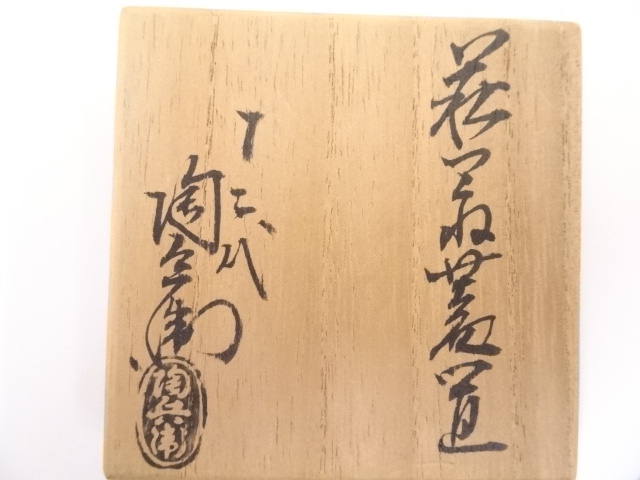 萩蓋置
十二代
陶兵衛
陶兵衛